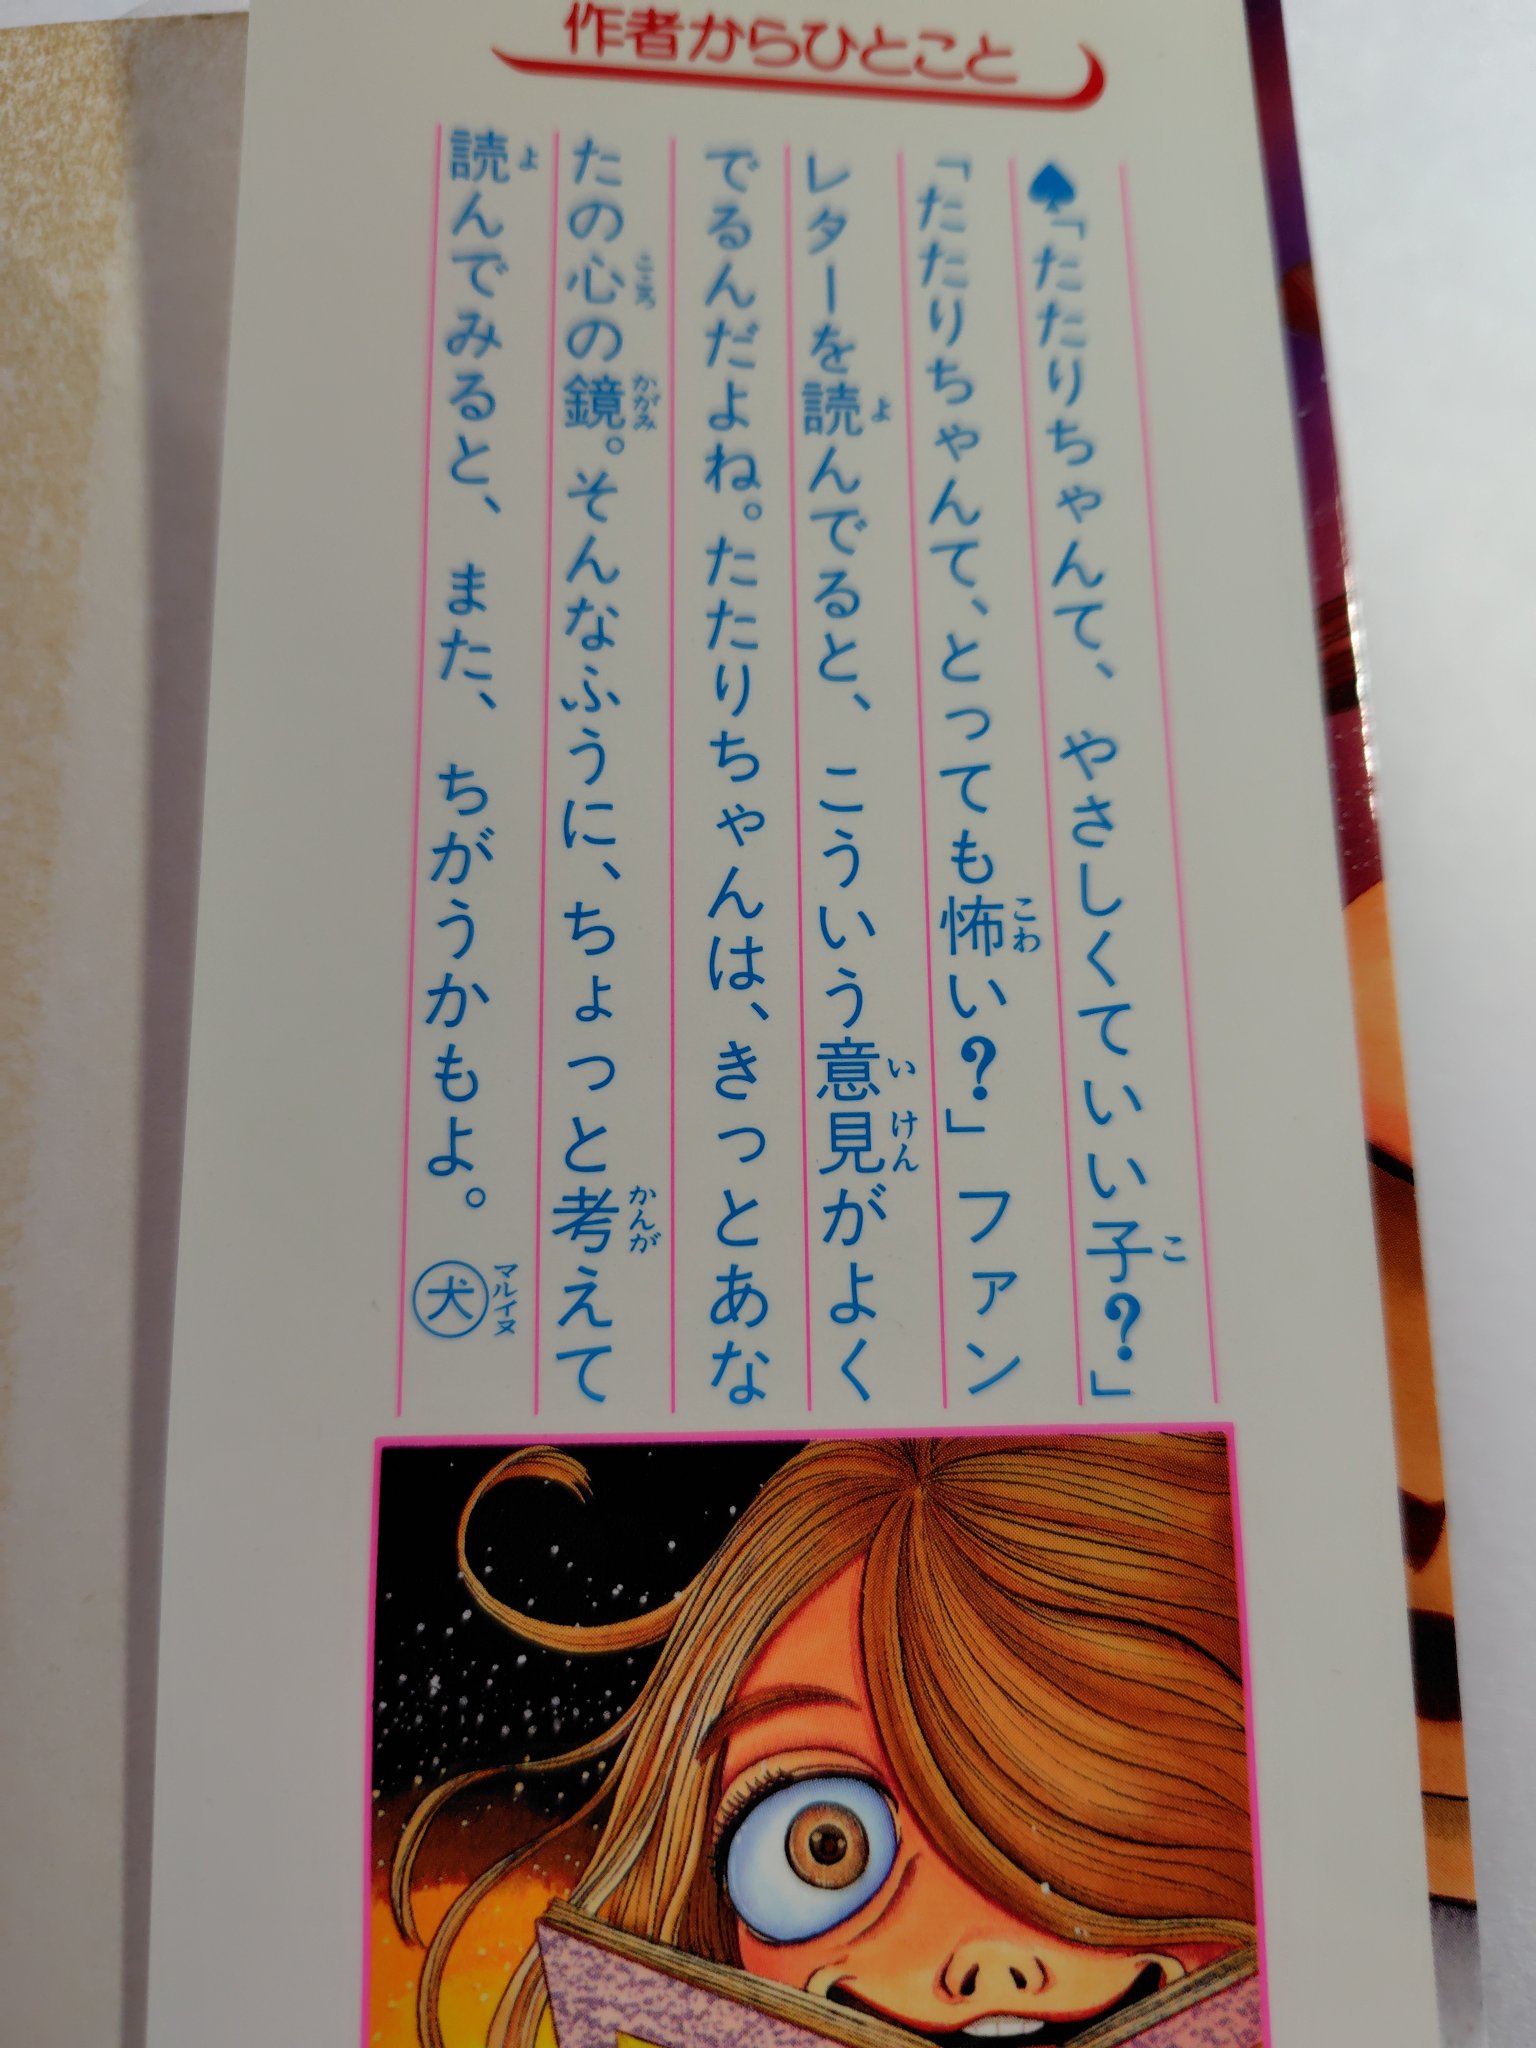 作者からひとこと
♠「たたりちゃんて、やさしくていい子?」
「たたりちゃんて、とっても怖い?」ファン
レターを読んでると、こういう意見がよく
でるんだよね。たたりちゃんは、きっとあな
たの心の鏡。そんなふうに、ちょっと考えて
読んでみると、また、ちがうかもよ。㊛犬